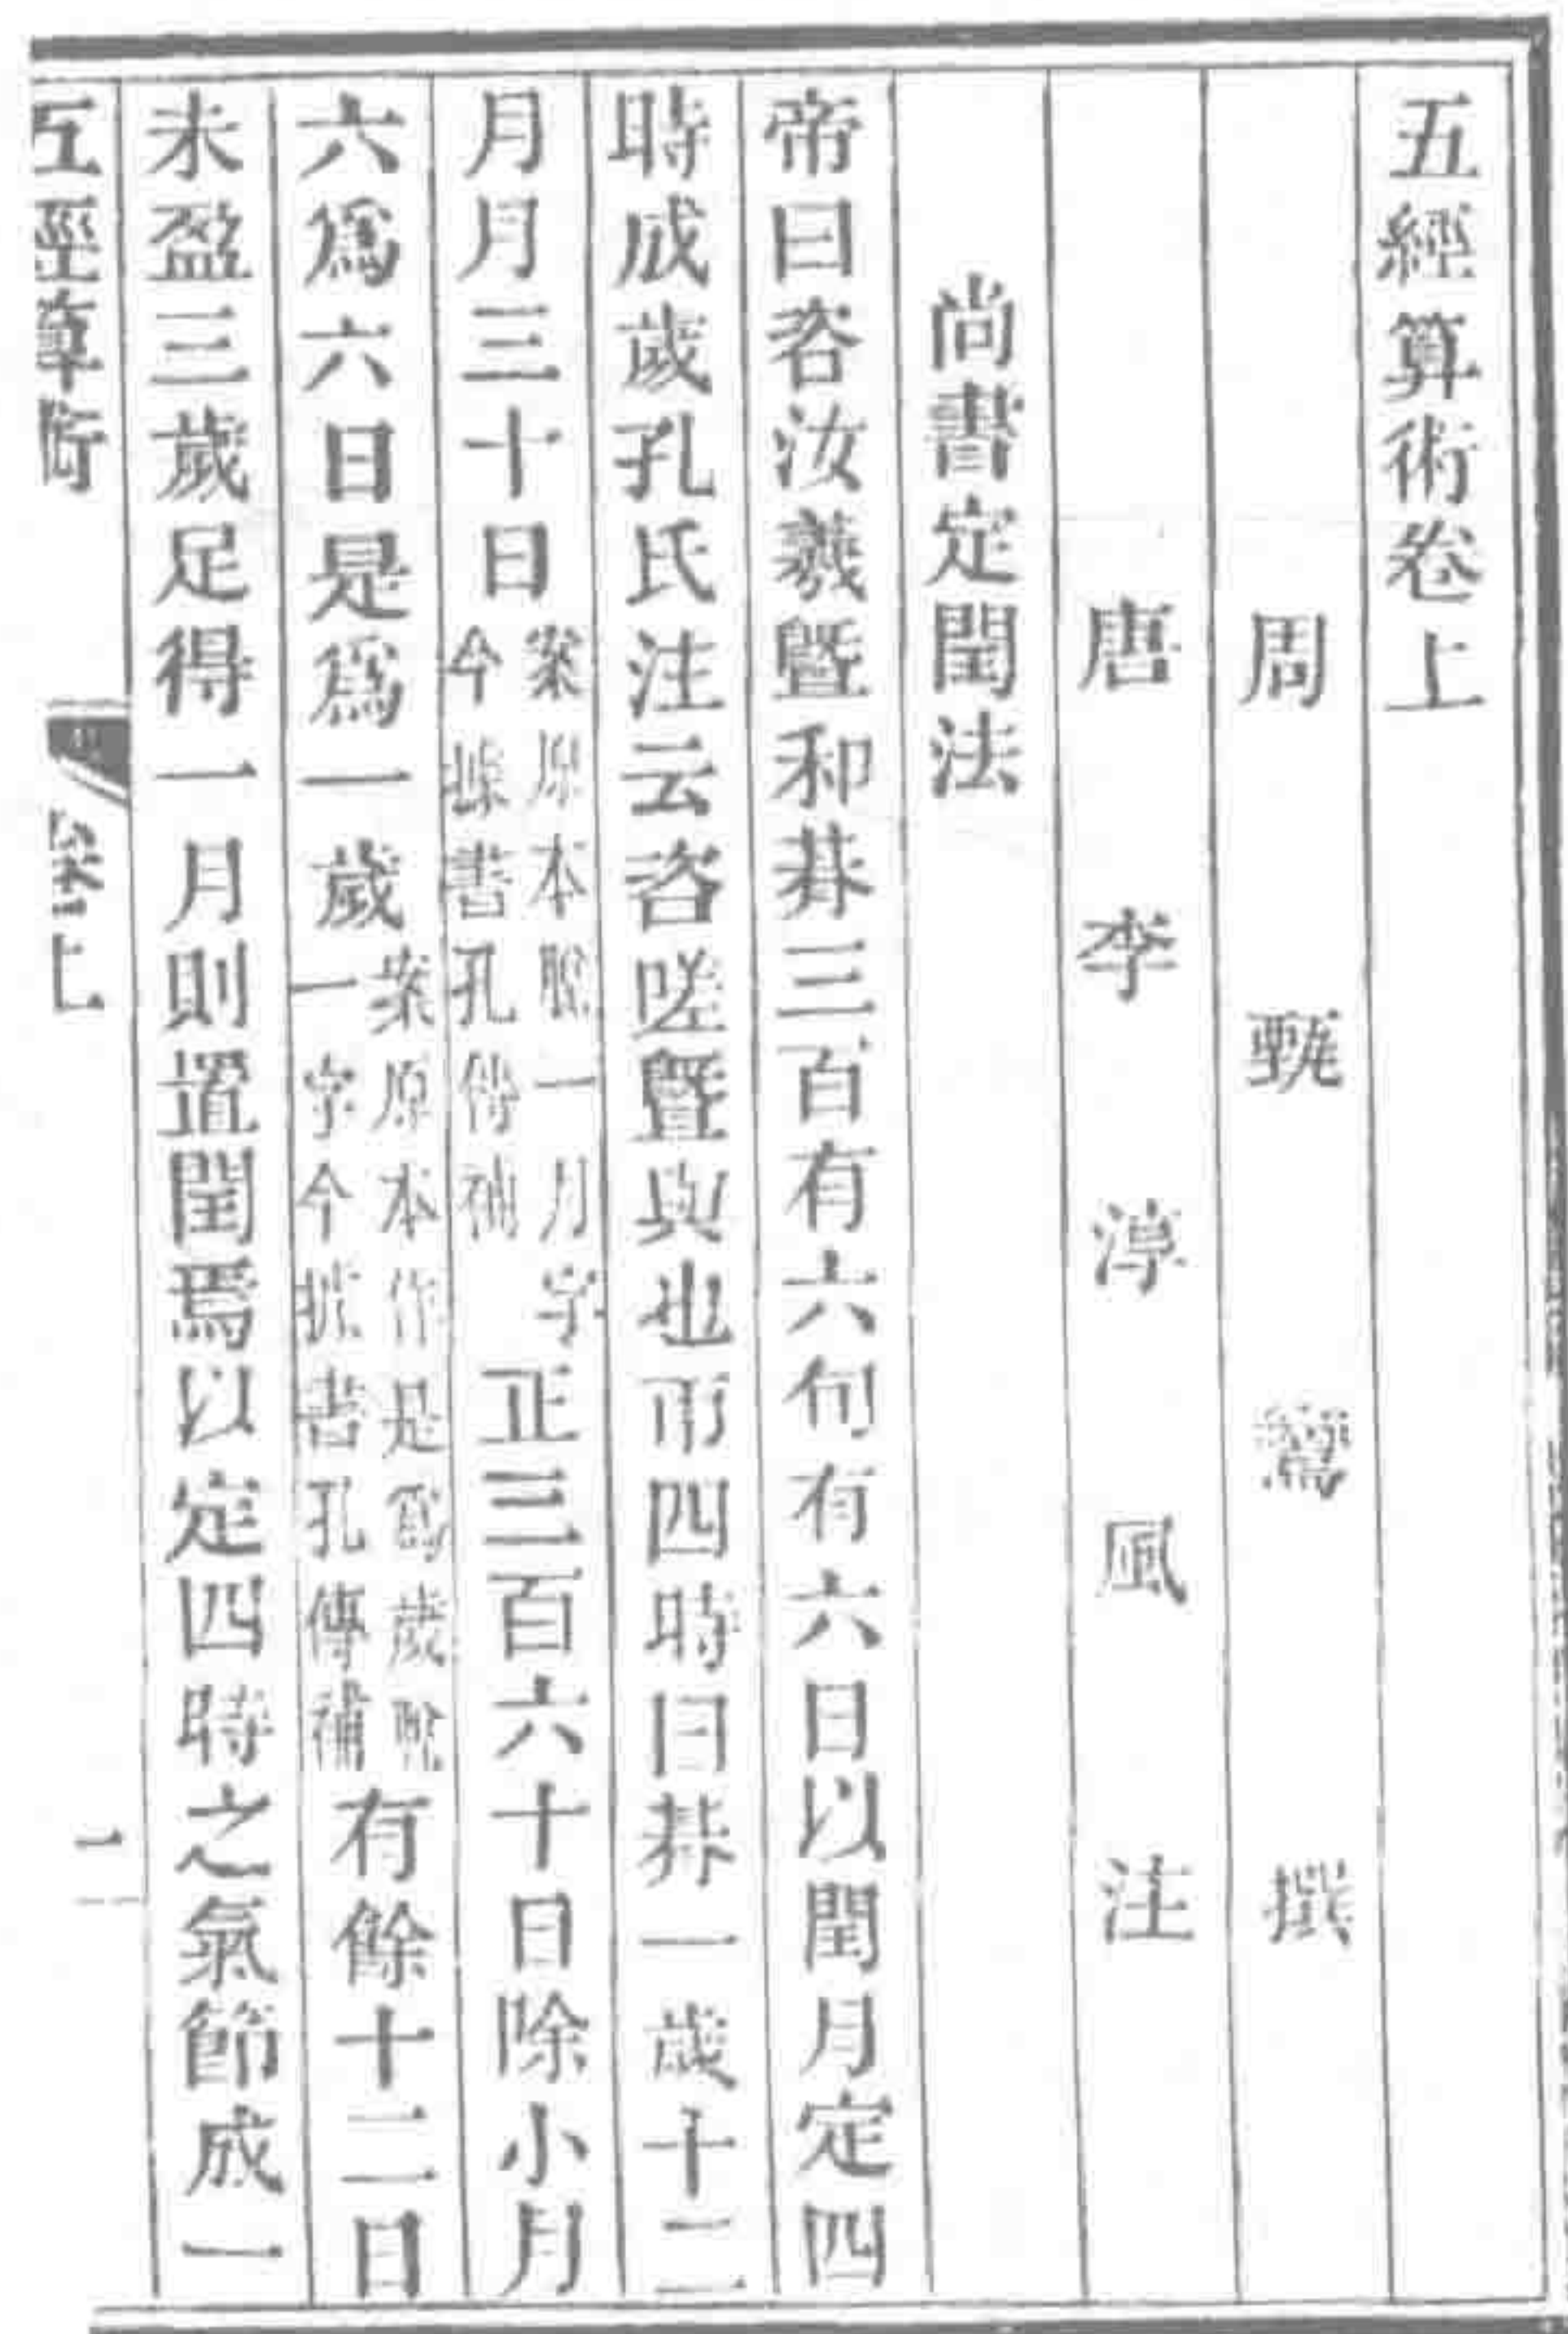 五經算術卷上
周 甄 鸞 撰
唐 李 淳 風 注
尚書定閏法
帝曰咨汝羲暨和朞三百有六旬有六日以閏月定四
時成歲孔氏注云咨嗟暨與也帀四時曰朞一歲十二
月月三十日案原本脫一月字今據書孔傳補正三百六十日除小月
六爲六日是爲一歲案原本作是爲歲脫一字今據書孔傳補有餘十二日
未盈三歲足得一月則置閏焉以定四時之氣節成一
五經算術 卷上 一